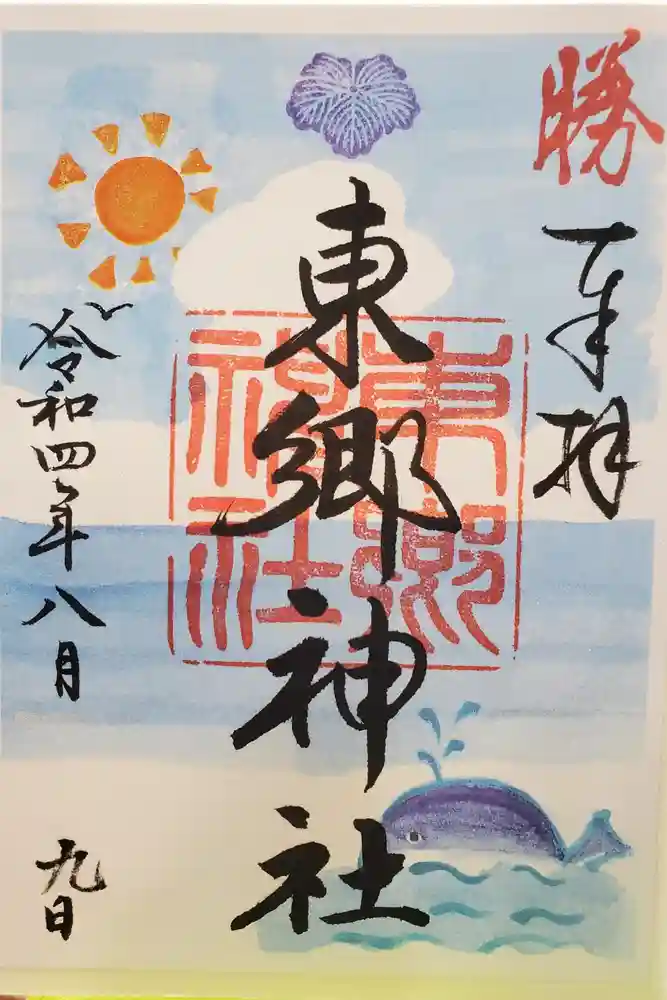 勝
奉拝
東郷神社
東郷
神社
令和四年八月
九日